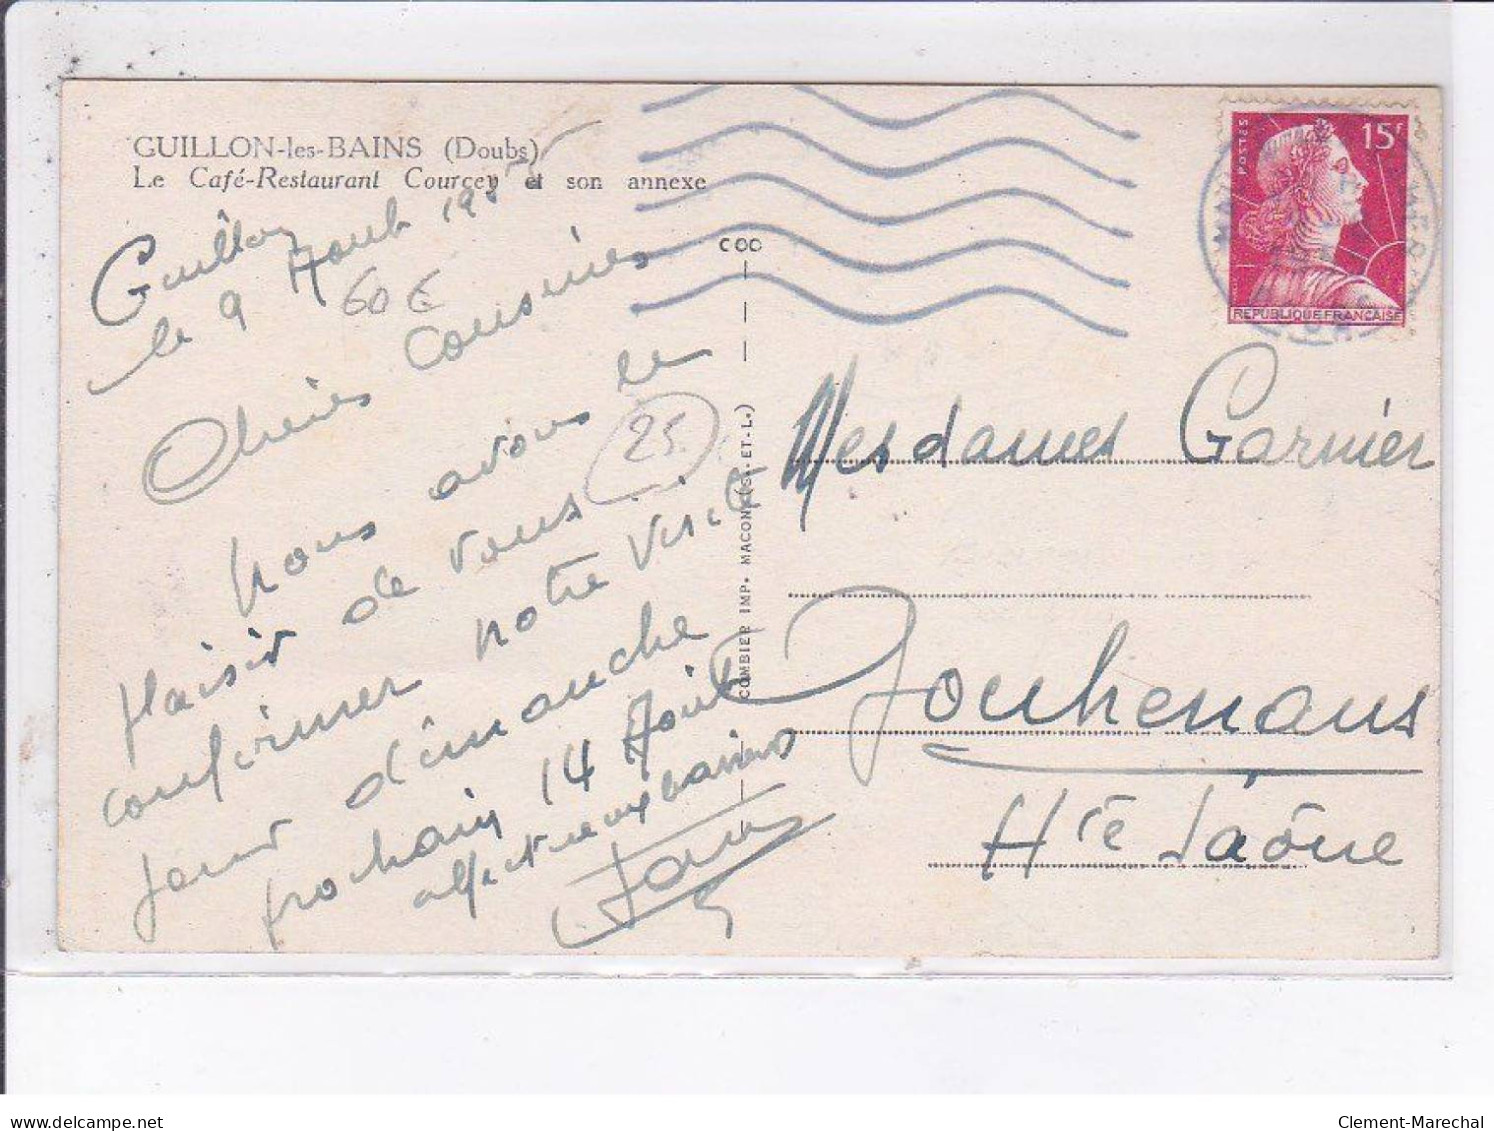 GUILLON-les-BAINS (Doubs)
Le Café-Restaurant Courcey et son annexe
Guillon
le 9 Aout 1955
60 €
Chères Cousines
25
nous avons le
plaisir de vous
confirmer notre visite
pour dimanche
prochain 14 Août
affectueux baisers
COO
COMBIER IMP. MACON (S.-ET-L.)
POSTES
15F
REPUBLIQUE FRANCAISE
Mesdames Garnier
Jouhenans
Hte Saône
delcampe.net
Clement-Marechal